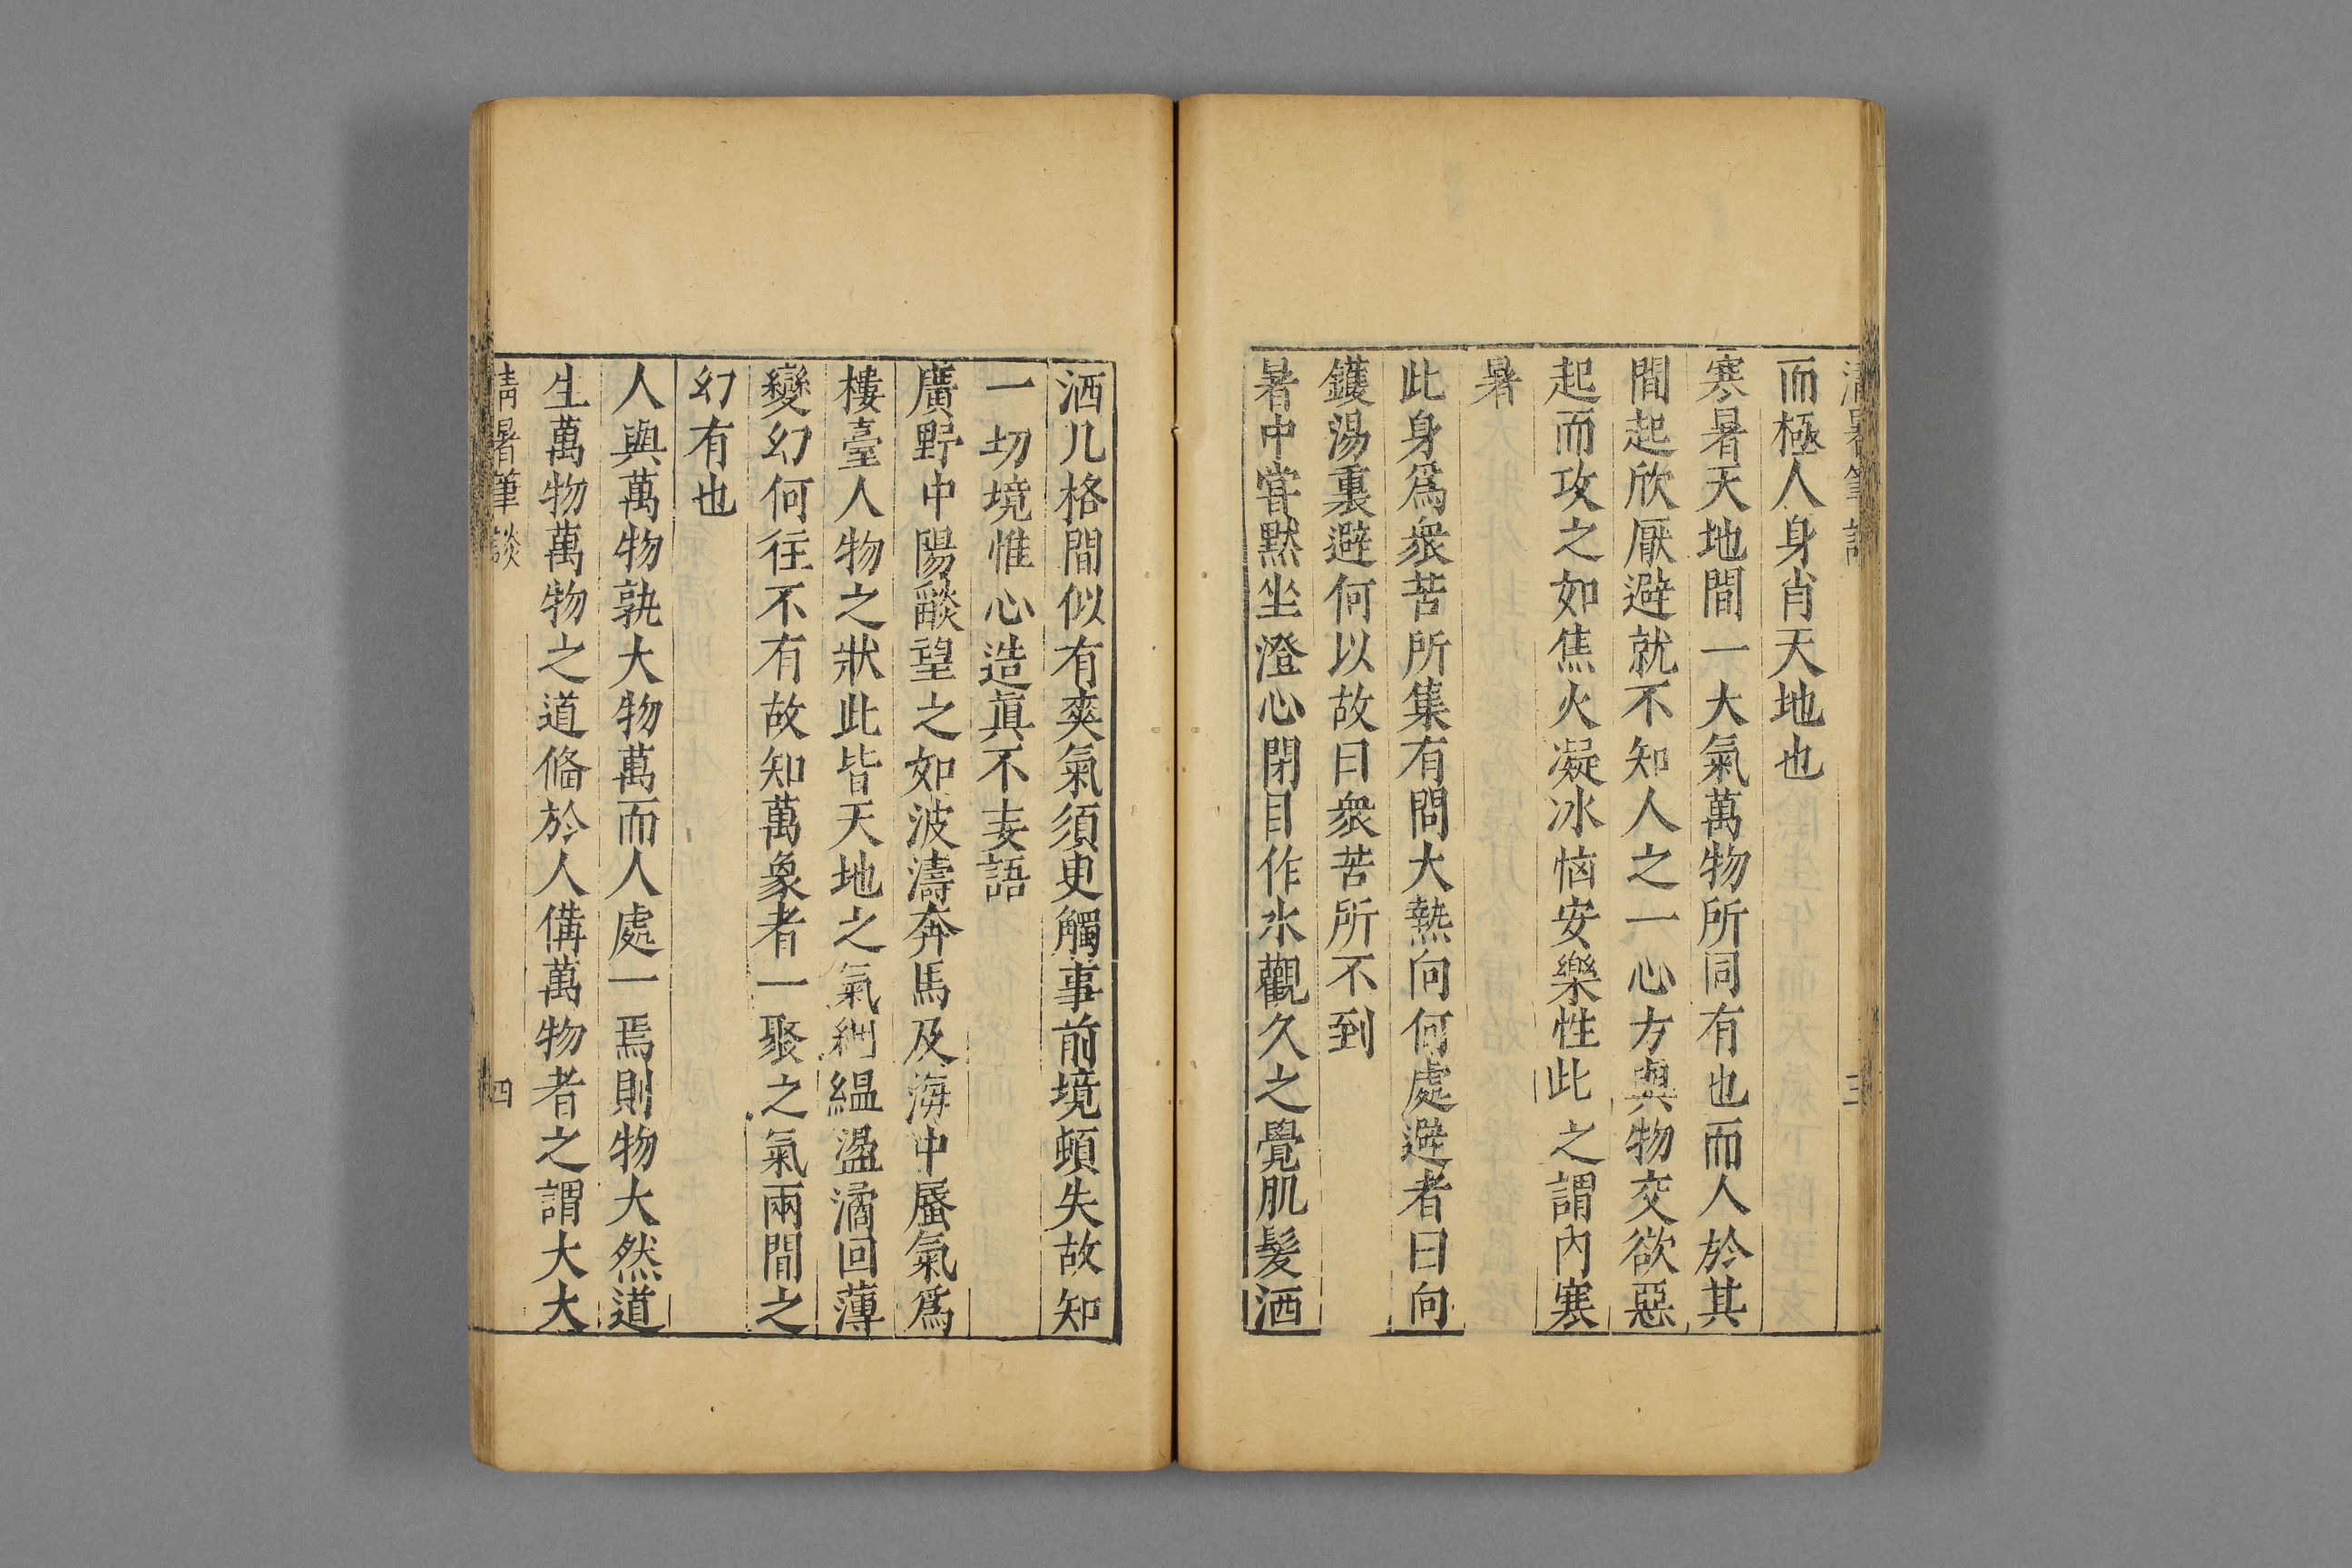 清暑筆談
三
而極人身肖天地也
寒暑天地間一大氣萬物所同有也而人於其
間起欣厭避就不知人之一心方與物交欲惡
起而攻之如焦火凝冰惱安樂性此之謂內寒
暑
此身爲衆苦所集有問大熱向何處避者曰向
鑊湯裏避何以故曰衆苦所不到
暑中嘗默坐澄心閉目作水觀久之覺肌髮洒
洒几格間似有爽氣須臾觸事前境頓失故知
一切境惟心造眞不妄語
廣野中陽燄望之如波濤奔馬及海中蜃氣爲
樓臺人物之狀此皆天地之氣絪縕盪潏回薄
變幻何往不有故知萬象者一聚之氣兩間之
幻有也
人與萬物孰大物萬而人處一焉則物大然道
生萬物萬物之道偹於人備萬物者之謂大大
清暑筆談
四